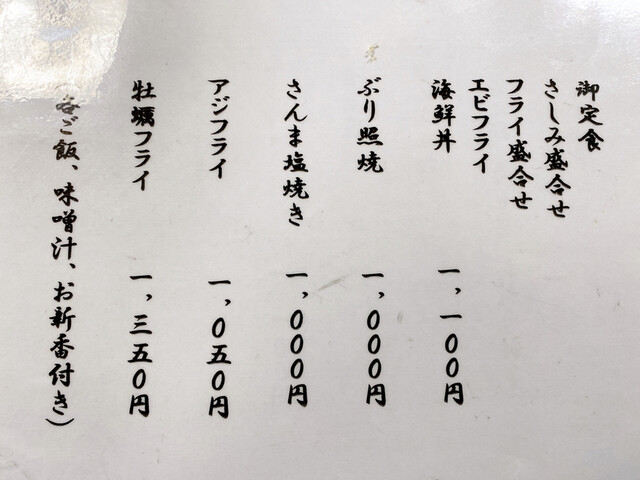 御定食
さしみ盛合せ
フライ盛合せ
エビフライ
海鮮丼 一,一〇〇円
ぶり照焼 一,〇〇〇円
さんま塩焼き 一,〇〇〇円
アジフライ 一,〇五〇円
牡蠣フライ 一,三五〇円
各ご飯、味噌汁、お新香付き)